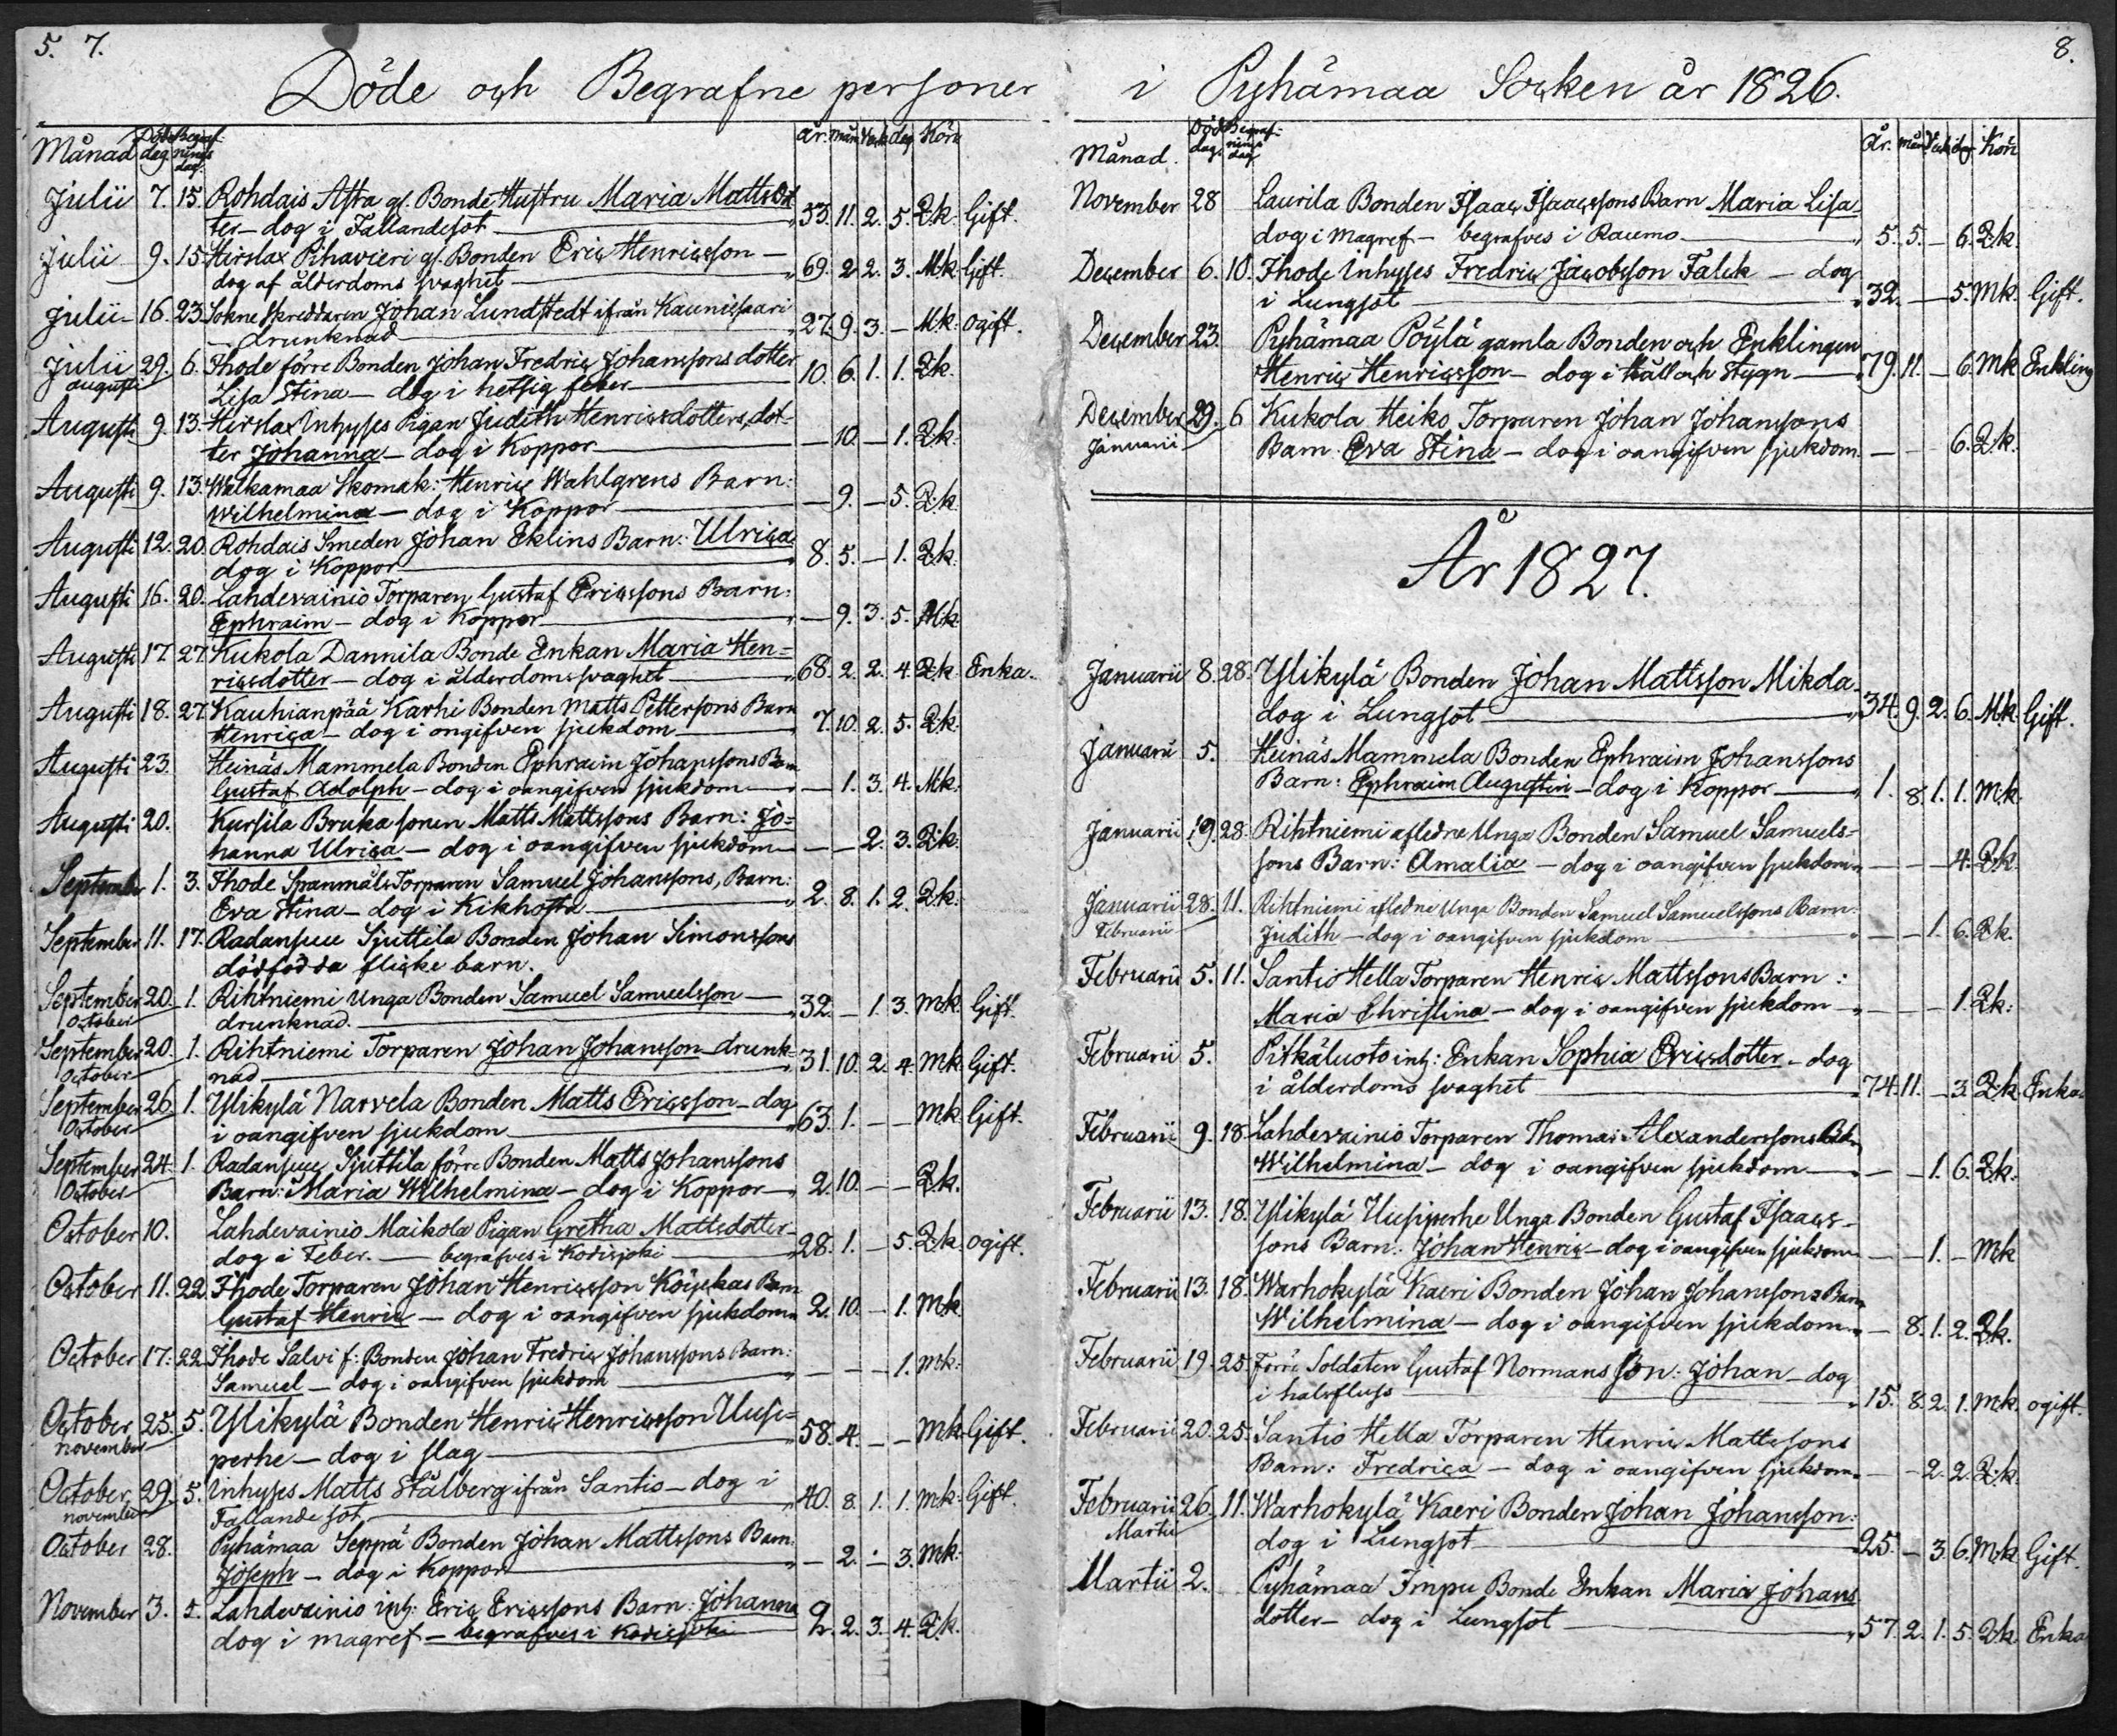 5. 7.
Döde och Begrafne personer
Månad Döds dag Begraf- nings dag. år. mån Veck dag Kön
Julii 7. 15. Rohdais Asta gl. Bonde Hustru Maria Matts Dot
ter - dog i Fallandesot 33. 11. 2. 5. Qk. Gift.
Julii 9. 15. Hirslax Pihavieri gl. Bonden Eric Henricsson -
dog af ålderdoms svaghet 69. 2 2. 3. Mk. Gift.
Julii 16. 23. Sokne Skreddaren Johan Lundstedt ifrån Kaunissaari
- drunknad 27. 9. 3. - Mk. ogift.
Julii 29. 6. Ihode förre Bonden Johan Fredric Johanssons dotter
augusti Lisa Stina - dog i hetsig feber 10. 6. 1. 1. Qk.
Augusti 9. 13. Hirslax Inhyses Pigan Judith Henricsdotters, dot-
ter Johanna - dog i Koppor - 10. - 1. Qk.
Augusti 9. 13. Walkamaa Skomak: Henric Wahlgrens Barn:
Wilhelmina - dog i Koppor - 9. - 5. Qk.
Augusti 12. 20. Rohdais Smeden Johan Eklins Barn: Ulrica
dog i Koppor 8. 5. - 1. Qk.
Augusti 16. 20. Lahdevainio Torparen Gustaf Ericssons Barn:
Ephraim - dog i Koppor - 9. 3. 5. Mk
Augusti 17 27. Kukola Dannila Bonde Enkan Maria Hen=
ricsdotter - dog i ålderdomssvaghet 68. 2. 2. 4. Qk Enka.
Augusti 18. 27. Kauhianpää Karhi Bonden Matts Pettersons Barn
Henrica - dog i ongifven sjukdom 7. 10. 2. 5. Qk.
Augusti 23. Heinäs Mammela Bonden Ephraim Johanssons Barn
Gustaf Adolph - dog i oangifven sjukdom - 1. 3. 4. Mk.
Augusti 20. Kursila Bruka sonen Matts Mattssons Barn: Jo=
hanna Ulrica - dog i oangifven sjukdom - - 2. 3. Qk.
September 1. 3. Ihode Spanmåls Torparen Samuel Johanssons, Barn:
Eva Stina - dog i Kikhosta 2. 8. 1. 2. Qk.
September 11. 17. Radansuu Sjuttila Bonden Johan Simonssons
dödfödda flicke barn.
September 20. 1. Rihtniemi Unga Bonden Samuel Samuelsson -
October drunknad. 32. - 1. 3. Mk. Gift.
September 20. 1. Rihtniemi Torparen Johan Johansson - drunk-
October nad 31. 10. 2. 4. Mk Gift.
September 26. 1. Ylikylä Narvela Bonden Matts Ericsson - dog
October i oangifven sjukdom 63. 1. - - Mk Gift.
September 24. 1. Radansuu Sjuttila förre Bonden Matts Johanssons
October Barn: Maria Wilhelmina - dog i Koppor 2. 10. - - Qk.
October 10. Lahdevainio Maikola Pigan Gretha Mattsdotter
dog i Feber. - begrafves i Kodisjoki 28. 1. - 5. Qk. ogift.
October 11. 22. Ihode Torparen Johan Henricsson Köyckas Barn
Gustaf Henric - dog i oangifven sjukdom 2. 10. - 1. Mk
October 17. 22. Ihode Salvi f: Bonden Johan Fredric Johanssons Barn:
Samuel - dog i oangifven sjukdom - - - 1. Mk.
October 25. 5. Ylikylä Bonden Henric Henricsson Uusi=
november perhe - dog i slag 58. 4. - - Mk Gift.
October 29. 5. Inhyses Matts Stålberg ifrån Santio - dog i
november Fallande sot, 40. 8. 1. 1. Mk. Gift.
October 28. Pyhämaa Seppä Bonden Johan Mattssons Barn:
Joseph - dog i Koppor - 2. - 3. Mk.
November 3. 5. Lahdevainio inh: Eric Ericssons Barn: Johanna
dog i magref - begrafves i Kodisjoki 2. 2. 3. 4. Qk.
8.
i Pyhämaa Socken år 1826.
Månad. Död dag. Begraf- nings dag År. mån Veck dag Kön
November 28 Laurila Bonden Isaac Isaacssons Barn Maria Lisa
dog i Magref - begrafves i Raumo 5. 5. - 6. Qk.
December 6. 10. Ihode Inhyses Fredric Jacobsson Falck - dog
i Lungsot 32. - - 5. Mk Gift.
December 23. Pyhämaa Pöylä gamla Bonden och Enklingen
Henric Henricsson - dog i håll och Stygn 79. 11. - 6. Mk Enkling
December 29. 6 Kukola Heiko Torparen Johan Johanssons
Januarii Barn. Eva Stina - dog i oangifven sjukdom. - - 6. Qk.
År 1827.
Januarii 8. 28. Ylikylä Bonden Johan Mattsson Mikola
dog i Lungsot 34. 9. 2. 6. Mk. Gift.
Januarii 5. Heinäs Mammela Bonden Ephraim Johanssons
Barn: Ephraim Augustin - dog i Koppor 1. 8. 1. 1. Mk.
Januarii 19. 28. Rihtniemi afledne Unga Bonden Samuel Samuels=
sons Barn: Amalia - dog i oangifven sjukdom - - - 4. Qk
Januarii 28. 11. Rihtniemi afledne Unga Bonden Samuel Samuelssons Barn:
Februarii Judith - dog i oangifven sjukdom - - 1. 6. Qk.
Februarii 5. 11. Santio Hella Torparen Henric Mattssons Barn:
Maria Christina - dog i oangifven sjukdom - - - 1. Qk:
Februarii 5. Pitkäluoto inh: Enkan Sophia Ericsdotter - dog
i ålderdoms svaghet 74. 11. - 3. Qk. Enka
Februarii 9. 18 Lahdevainio Torparen Thomas Alexanderssons Barn
Wilhelmina - dog i oangifven sjukdom - - 1. 6. Qk.
Februarii 13. 18. Ylikylä Uusiperhe Unga Bonden Gustaf Isaacs-
sons Barn: Johan Henric - dog i oangifven sjukdom - - 1. - Mk
Februarii 13. 18. Warhokylä Kaeri Bonden Johan Johanssons Barn
Wilhelmina - dog i oangifven sjukdom - 8. 1. 2. Qk.
Februarii 19. 25. Förre Soldaten Gustaf Normans Son: Johan - dog
i halsfluss 15. 8. 2. 1. Mk. ogift.
Februarii 20. 25. Santio Hella Torparen Henric Mattssons
Barn: Fredrica - dog i oangifven sjukdom - - 2. 2. Qk.
Februarii 26. 11. Warhokylä Kaeri Bonden Johan Johansson:
Martii dog i Lungsot 25. - 3. 6. Mk Gift.
Martii 2. Pyhämaa Impu Bonde Enkan Maria Johans
dotter - dog i Lungsot 57. 2. 1. 5. Qk Enka